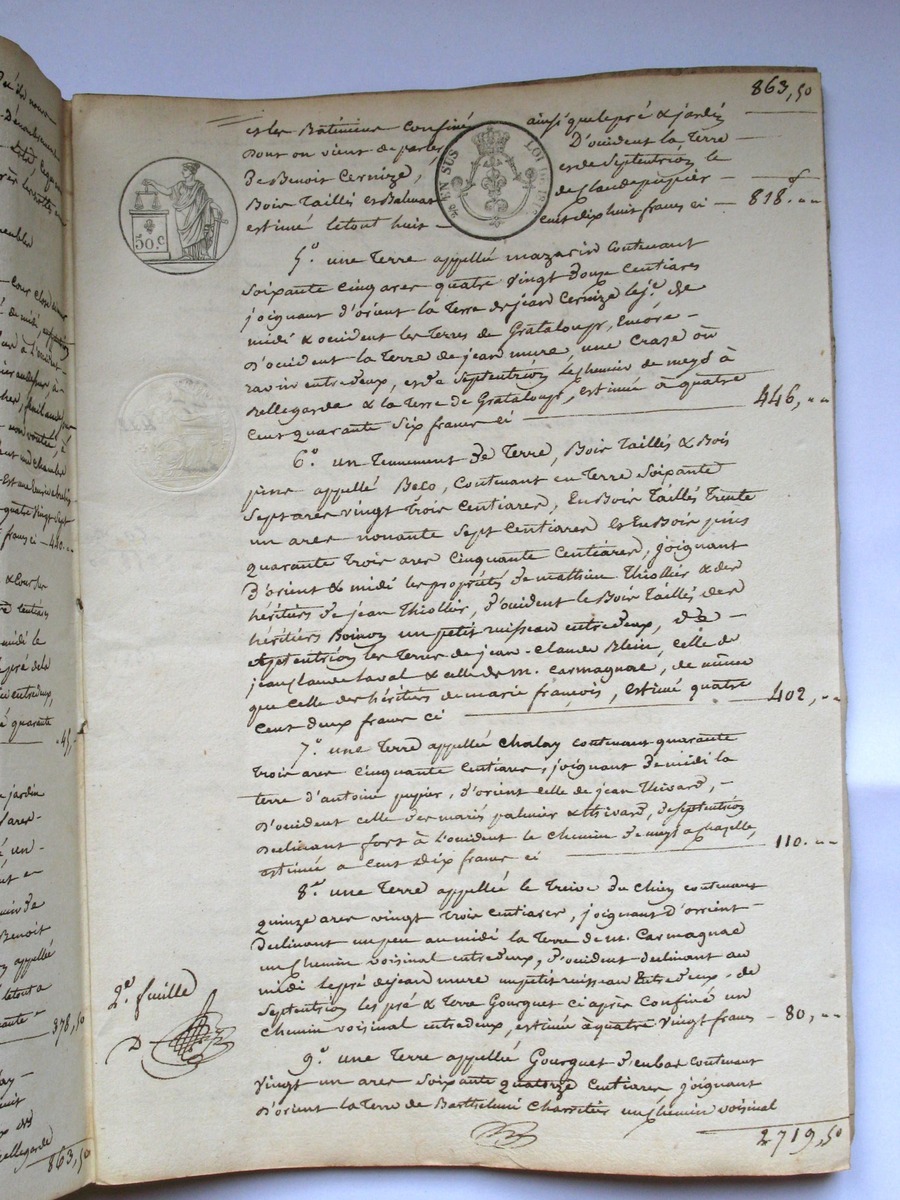 863,50
et les Bâtimens confinés ainsi que le pré & jardin
dont on vient de parler, D'occident la Terre
de Benoit Cernize, et de Septentrion le
Bois Taillis et Balmat de Claude pupier
estimé le tout huit cent dix huit francs ci - 818.""
EN SUS
LOI DE 1816
50.c
5°. une Terre appellée mazarin contenant
Soixante cinq ares quatre vingt douze Centiares
joignant d'orient la Terre de jean Cernize le je. de
midi & occident les Terres de Grataloup, Encore -
D'occident la Terre de jean mure, une Craze ou
ravin entredeux, et de Septentrion le Chemin de meys à
Bellegarde & la Terre de Grataloup, estimée à quatre
Cent quarante Six francs ci 446,""
6° un Tennement de Terre, Bois Taillés & Bois
pins appellé Beco, Contenant en Terre Soixante
Sept ares vingt Trois Centiares, En Bois Taillés Trente
un ares nonante Sept Centiares et En Bois pins
quarante Trois ares Cinquante Centiares, joignant
D'orient & midi les propriétés de mathieu Thiollier & des
héritiers de jean Thiollier, d'occident le Bois Taillés des
héritiers Boinon un petit ruisseau entredeux, & de -
Septentrion les Terres de jean-Claude Blein, celle de
jean Claude Laval & celle de m. Carmagnac, de même
que Celle des héritiers de marie françois, Estimé quatre
Cent deux francs ci 402,""
7° une Terre appellée Chalay contenant quarante
Trois ares Cinquante Centiares, joignant de midi la
terre d'antoine pupier, d'orient celle de jean Thivard, -
d'occident celle des mariés palmier & thivard, de Septentrion
declinant fort à L'occident le chemin de meys a chapelle,
estimée a Cent Dix francs ci 110.""
8° une Terre appellée le Treive du Chien contenant
quinze ares vingt Trois centiares, joignant d'orient -
Declinant un peu au midi la Terre de m. Carmagnac
un Chemin voisinal entredeux, d'occident declinant au
midi le pré de jean mure un petit ruisseau Entredeux - de
Septentrion les pré & Terre Gourguet ci après Confiné un
Chemin voisinal entredeux, estimée à quatre vingt francs - 80,""
2e. feuille
9° une Terre appellée Gourguet d'enbas contenant
vingt un ares Soixante quatorze Centiares joignant
d'orient la Terre de Barthelemi Charretier un Chemin voisinal
2719,50
440.""
378,50
863,50